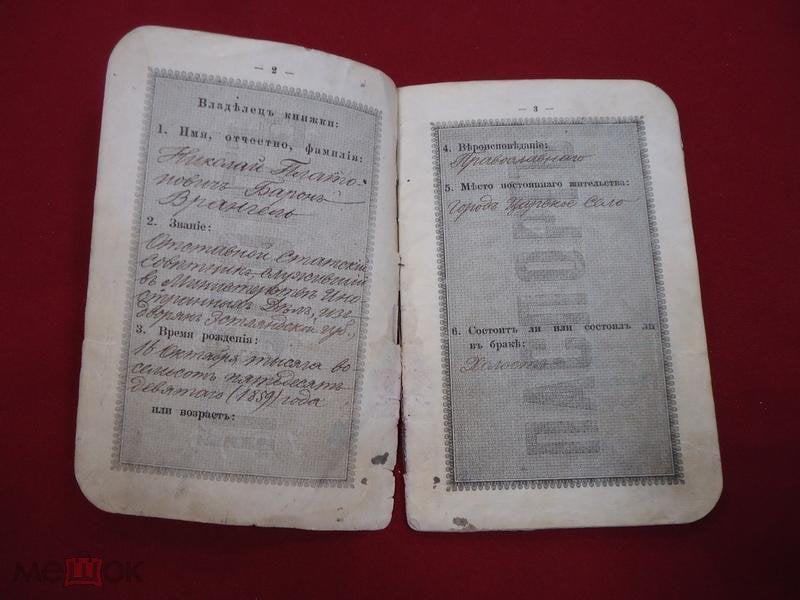 — 2 —
Владѣлецъ книжки:
1. Имя, отчество, фамилія:
Николай Плато-
новичъ Баронъ
Врангель
2. Званіе:
Отставной Статскій
совѣтникъ, служившій
въ Министерствѣ Ино-
странныхъ Дѣлъ, изъ
Дворянъ Эстляндской губ.,
3. Время рожденія:
16 Октября тысяча во-
семьсотъ пятьдесятъ
девятаго (1859) года
или возрастъ:
— 3 —
4. Вѣроисповѣданіе:
Православнаго
5. Мѣсто постояннаго жительства:
городъ Царское Село
6. Состоитъ ли или состоялъ ли
въ бракѣ:
Холостъ
ПАСПОРТ
мешок